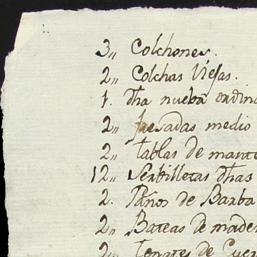 3,, Colchones.
2,, Colchas Viejas.
1. dha nueba ordina
2,, fresadas medio
2,, tablas de mante
12,, Serbilletas dhas
2. Paños de Barba
2,, Bateas de mader
2,, Tenates de Cuer